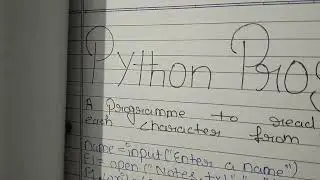 Python Prog
A Programme to read
each character from
name = input("Enter a name")
F1 = open("Notes.txt"